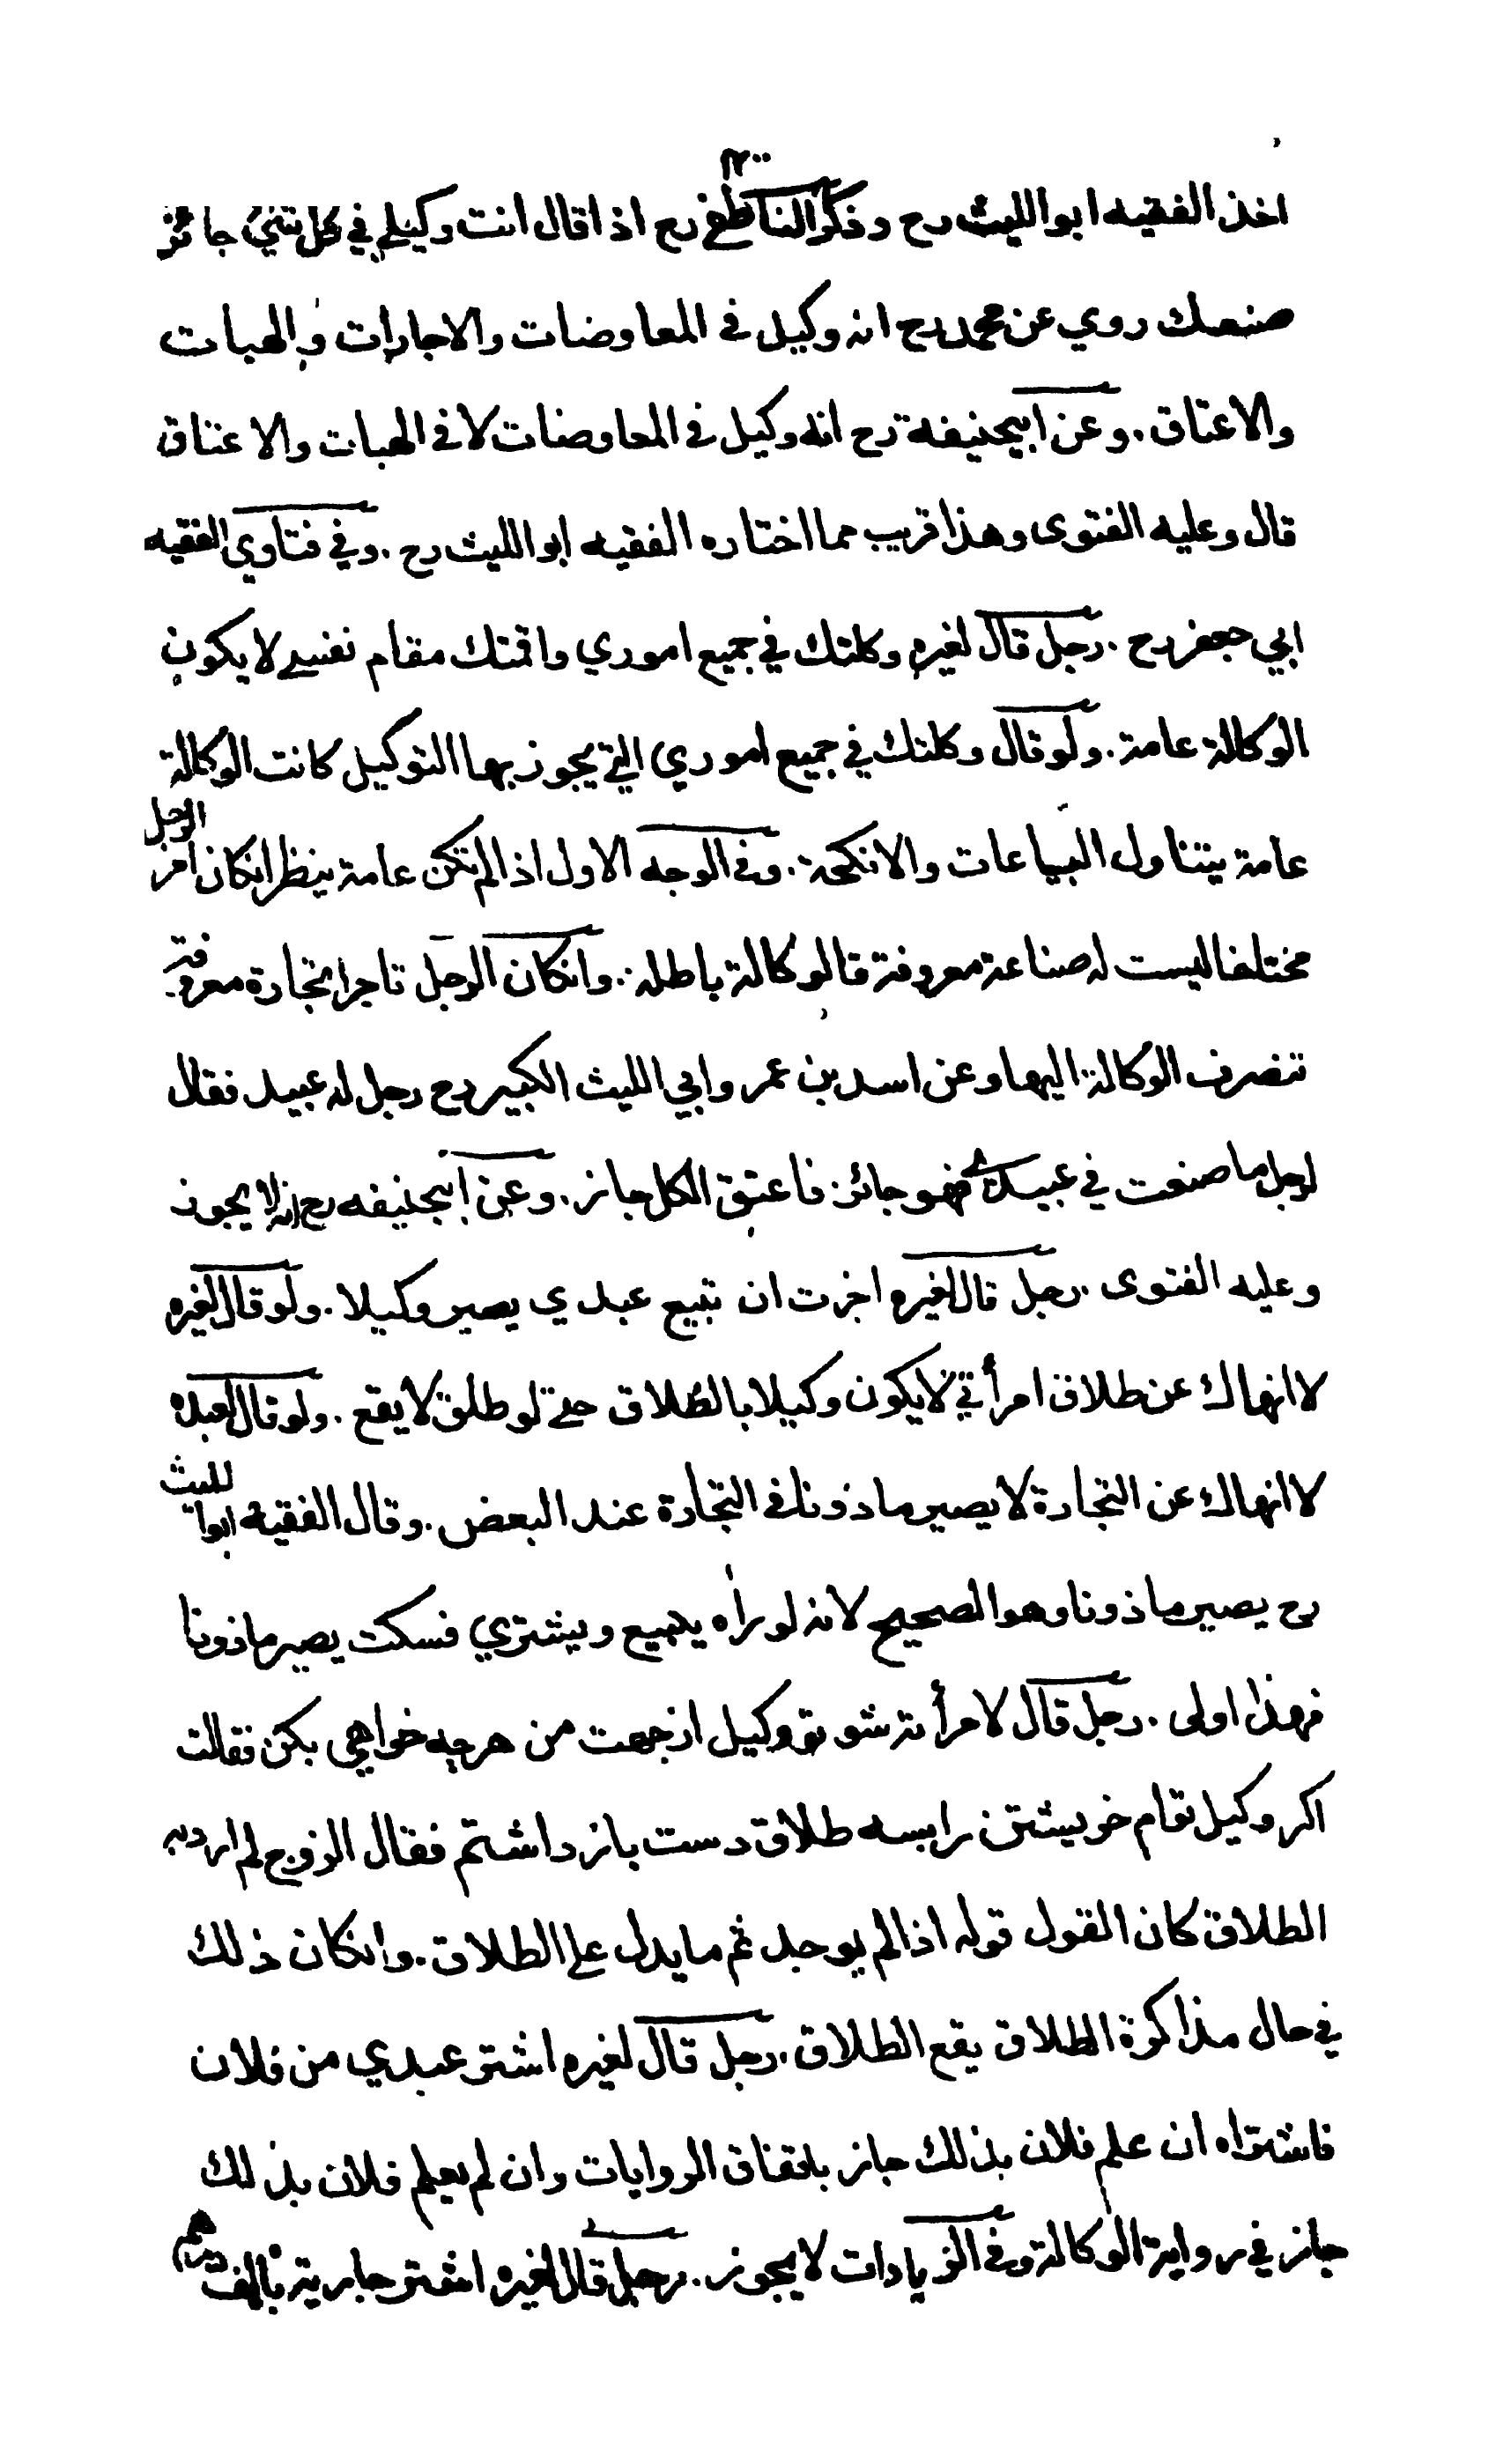 اخذ الفقيه ابوالليث رح وذكر الناطفي رح اذا قال انت وكيلي في كل شيئ جائز
صنعك روي عن محمد رح انه وكيل في المعاوضات والاجارات والهبات
والاعتاق . وعن ابيحنيفة رح انه وكيل في المعاوضات لا في الهبات والاعتاق
قال وعليه الفتوى وهذا قريب مما اختاره الفقيه ابوالليث رح . وفي فتاوي الفقيه
ابي جعفر رح . رجل قال لغيره وكلتك في جميع اموري واقمتك مقام نفسي لا يكون
الوكالة عامة . ولو قال وكلتك في جميع اموري التي يجوز بها التوكيل كانت الوكالة
عامة يتناول البياعات والانكحة . وفي الوجه الاول اذا لم تكن عامة ينظر انكان امر الرجل
مختلفا ليست له صناعة معروفة فالوكالة باطلة . وانكان الرجل تاجرا تجارة معروفة
تنصرف الوكالة اليها وعن اسد بن عمر وابي الليث الكبير رح رجل له عبيد فقال
لرجل ما صنعت في عبيدي فهو جائز فاعتق الكل جاز . وعن ابيحنيفه رح انه لا يجوز
وعليه الفتوى . رجل قال لغيره اخرت ان تبيع عبدي يصير وكيلا . ولو قال لغيره
لا انهاك عن طلاق امرأتي لا يكون وكيلا بالطلاق حتى لو طلق لا يقع . ولو قال لعبده
لا انهاك عن التجارة لا يصير ماذونا في التجارة عند البعض . وقال الفقيه ابوالليث
رح يصير ماذونا وهو الصحيح لانه لو رأه يبيع ويشتري فسكت يصير ماذونا
فهذا اولى . رجل قال لامرأته شو تو وكيل از جهت من هرچه خواهي بكن فقالت
اكر وكيل توام خويشتن را بسه طلاق دست باز داشتم فقال الزوج لم ارد به
الطلاق كان القول قوله اذا لم يوجد ثم ما يدل على الطلاق . وانكان ذلك
في حال مذاكرة الطلاق يقع الطلاق . رجل قال لغيره اشتر عبدي من فلان
فاشتراه ان علم فلان بذلك جاز باتفاق الروايات وان لم يعلم فلان بذلك
جاز في رواية الوكالة وفي الزيادات لا يجوز . رجل قال لغيره اشتر جارية بالف درهم